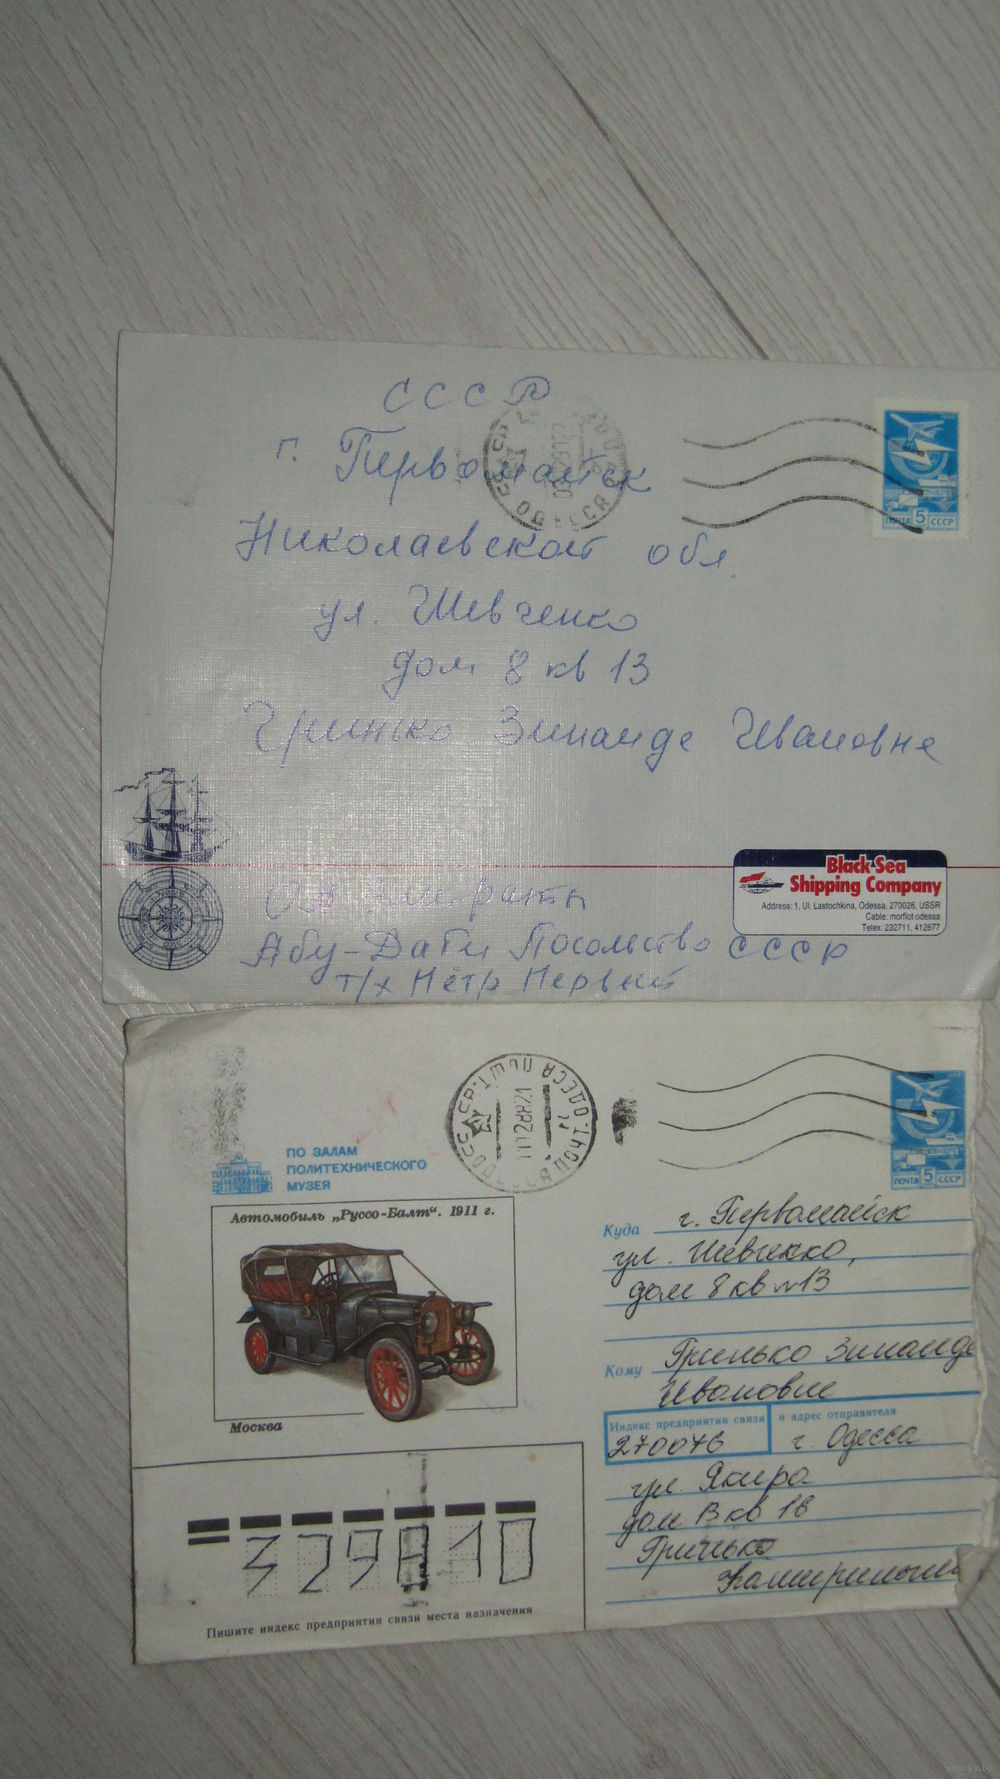 СССР
г. Первомайск
Николаевской обл.
ул. Шевченко
дом 8 кв 13
Гринько Зинаиде Ивановне
ПОЧТА 5 СССР
ОДЕССА
Black Sea
Shipping Company
Address: 1, Ul. Lastochkina, Odessa, 270026, USSR
Cable: morflot odessa
Telex: 232711, 412677
ОАЭ Эмираты
Абу-Даби Посольство СССР
т/х Пётр Первый
ОДЕССА ПОЧТ.
ПОЧТА 5 СССР
ПО ЗАЛАМ
ПОЛИТЕХНИЧЕСКОГО
МУЗЕЯ
Автомобиль „Руссо-Балт“. 1911 г.
Москва
Куда г. Первомайск
ул. Шевченко,
дом 8 кв 13
Кому Гринько Зинаиде
Ивановне
Индекс предприятия связи и адрес отправителя
270076 г. Одесса
ул. Якира
дом кв 16
Гринько
329810
Пишите индекс предприятия связи места назначения
www.ay.by